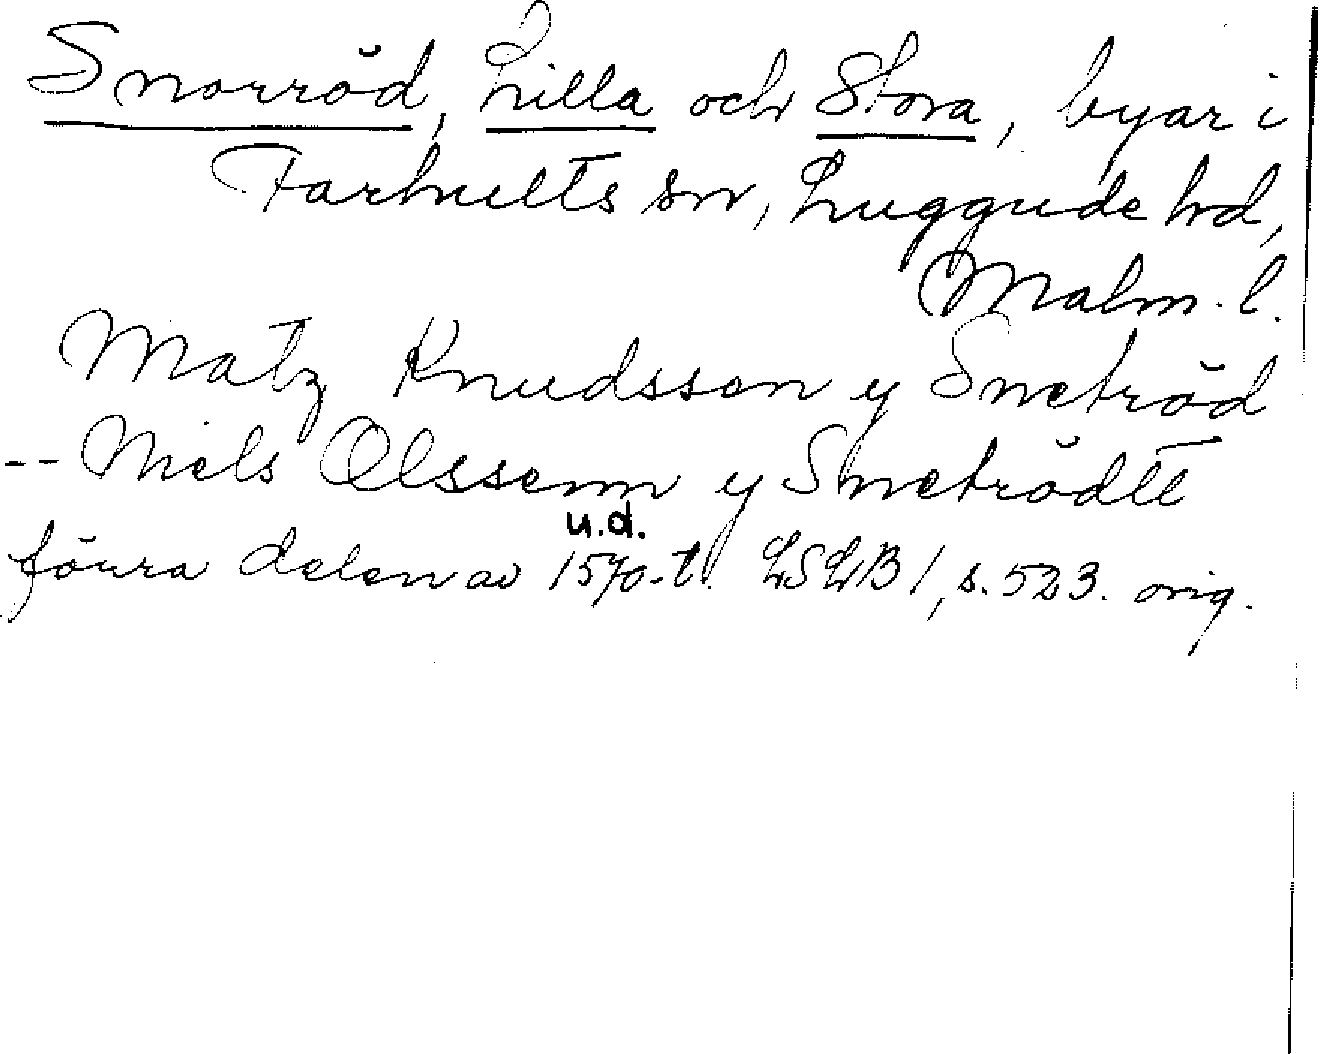 Snorröd, Lilla och Stora, byar i
Farhults sn, Luggude hd,
Malm. l.
Matz Knudsson y Snetröd
-- Niels Olssenn y Snetrödtt
u.d.
förra delen av 1570-t. LSLB 1, s. 523. orig.